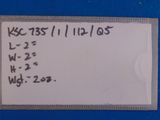 KSC 735/1/112/05
L-2"
W-2"
H-2"
Wgt.-2oz.